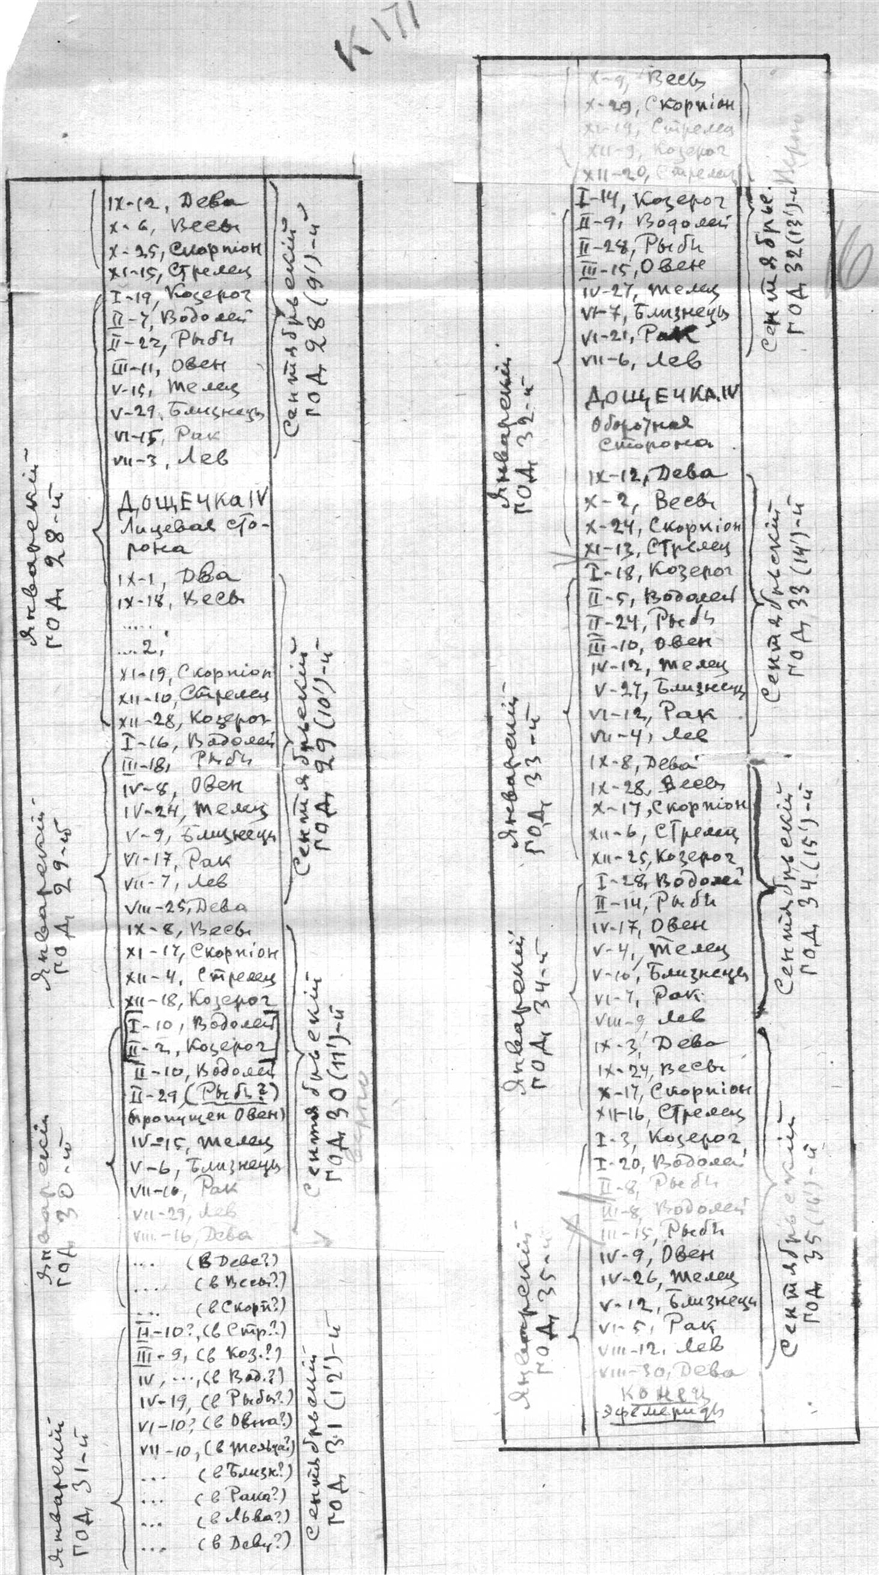 К 171
IX-12, Дева
X-6, Весы
X-25, Скорпіон
XI-15, Стрелец
I-19, Козерог
II-7, Водолей
II-22, Рыбы
III-11, Овен
V-15, Телец
V-29, Близнецы
VI-15, Рак
VII-3, Лев
ДОЩЕЧКА IV
Лицевая сто-
рона
IX-1, Два
IX-18, Весы
.....
....2,
XI-19, Скорпіон
XII-10, Стрелец
XII-28, Козерог
I-16, Водолей
III-18, Рыбы
IV-8, Овен
IV-24, Телец
V-9, Близнецы
VI-17, Рак
VII-7, Лев
VIII-25, Дева
IX-8, Весы
XI-17, Скорпіон
XII-4, Стрелец
XII-18, Козерог
[I-10, Водолей
II-2, Козерог]
II-10, Водолей
II-29, (Рыбы?)
(пропущен Овен)
IV-15, Телец
V-6, Близнецы
VII-10, Рак
VII-29, Лев
VIII-16, Дева
... (в Деве?)
... (в Весы?)
... (в Скорп?)
II-10?, (в Стр.?)
III-9, (в Коз.?)
IV, ..., (в Вод.?)
IV-19, (в Рыбы?)
VI-10? (в Овна?)
VII-10, (в Тельца?)
... (в Близн?)
... (в Рака?)
... (в Льва?)
... (в Деву?)
Январскій
год 28-й
Январскій
год 29-й
Январскій
год 30-й
Январскій
год 31-й
Сентябрьскій
год 28 (9')-й
Сентябрьскій
год 29 (10')-й
Сентябрьскій
год 30 (11')-й
Сентябрьскій
год 31 (12')-й
X-9, Весы
X-29, Скорпіон
XI-19, Стрелец
XII-9, Козерог
XII-20, Стрелец
I-14, Козерог
II-9, Водолей
II-28, Рыбы
III-15, Овен
IV-27, Телец
VI-7, Близнецы
VI-21, Рак
VII-6, Лев
ДОЩЕЧКА IV
Оборотная
сторона
IX-12, Дева
X-2, Весы
X-24, Скорпіон
XI-13, Стрелец
I-18, Козерог
II-5, Водолей
II-24, Рыбы
III-10, Овен
IV-12, Телец
V-27, Близнецы
VI-12, Рак
VII-4, Лев
IX-8, Дева
IX-28, Весы
X-17, Скорпіон
XII-6, Стрелец
XII-25, Козерог
I-28, Водолей
II-14, Рыбы
IV-17, Овен
V-4, Телец
V-10, Близнецы
VI-7, Рак
VIII-9 Лев
IX-3, Дева
IX-24, Весы
X-17, Скорпіон
XII-16, Стрелец
I-3, Козерог
I-20, Водолей
II-8, Рыбы
III-8, Водолей
III-15, Рыбы
IV-9, Овен
IV-26, Телец
V-12, Близнецы
VI-5, Рак
VIII-12, Лев
VIII-30, Дева
Конец
эфемериды
Январскій
год 32-й
Январскій
год 33-й
Январскій
год 34-й
Январскій
год 35-й
Сентябрьс.
год 32 (13')-й
Сентябрьскій
год 33 (14')-й
Сентябрьскій
год 34 (15')-й
Сентябрьскій
год 35 (16')-й